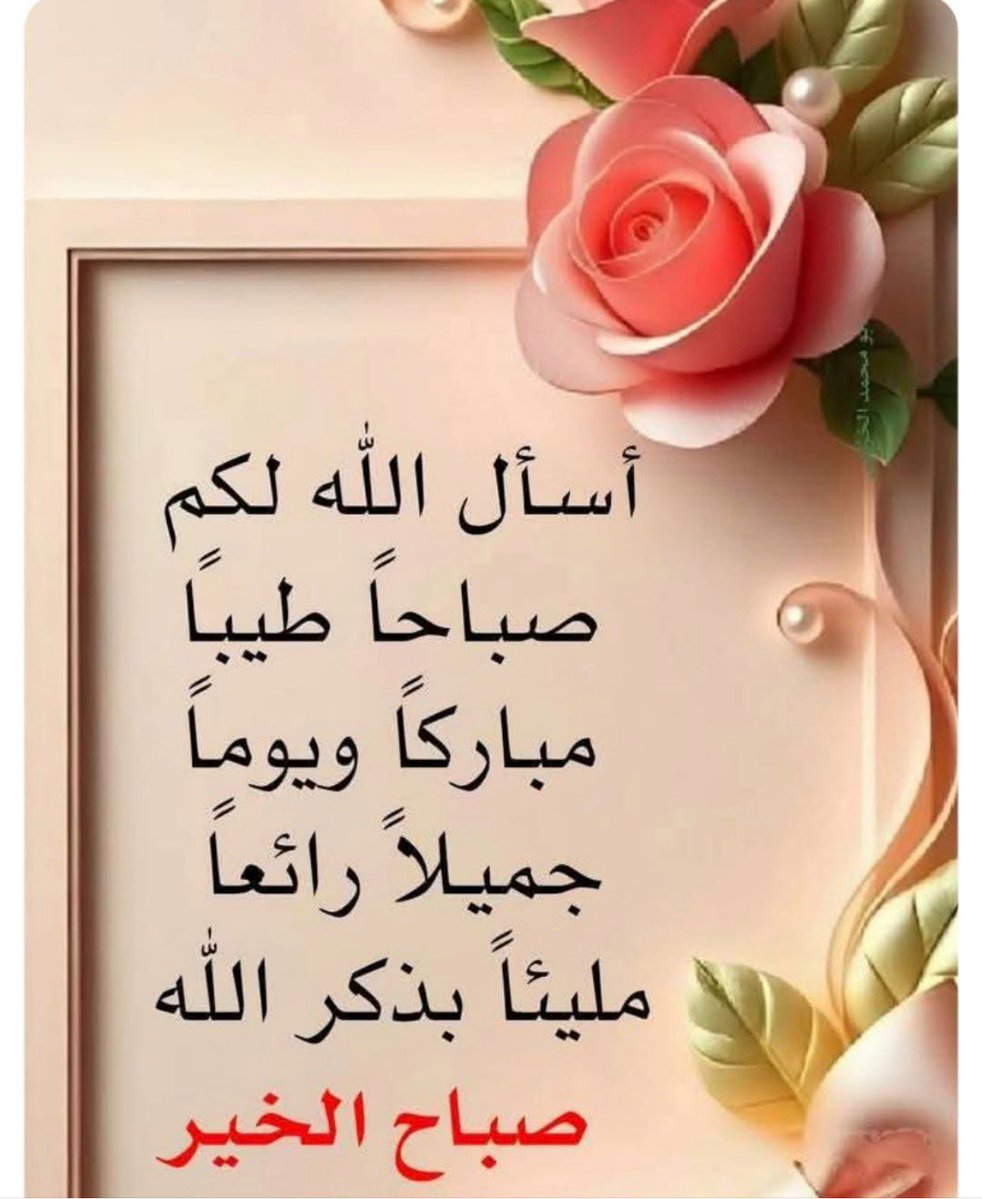 أسأل الله لكم
صباحاً طيباً
مباركاً ويوماً
جميلاً رائعاً
مليئاً بذكر الله
صباح الخير